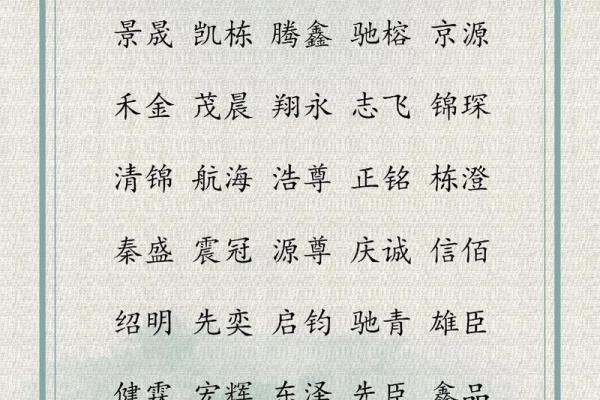 景晟 凯栋 腾鑫 驰榕 京源
禾金 茂晨 翔永 志飞 锦琛
清锦 航海 浩尊 正铭 栋澄
秦盛 震冠 源尊 庆诚 信佰
绍明 先奕 启钧 驰青 雄臣
健霖 宏辉 东泽 先臣 鑫品